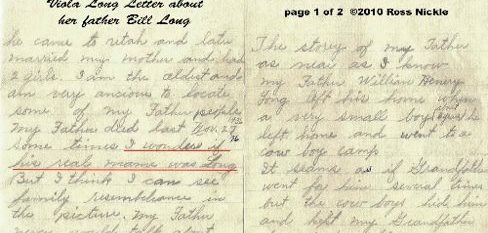 Viola Long Letter about
her father Bill Long
he came to Utah and late
married my mother and had
2 girls. I am the oldest and
am very anxious to locate
some of my Father people
my Father died last Nov. 27
1936
some times I wonder if
his real name was Long
But I think I can see
family resemblance in
the picture. my Father
never would talk about
page 1 of 2 ©2010 Ross Nickle
The storey of my Father
as near as I know
my Father William Henery
Long left his home when
a very small boy
left home and went to a
cow boy camp
It seams as if Grandfather
went for him several times
but the cow boys hid him
and kept my Grandfather